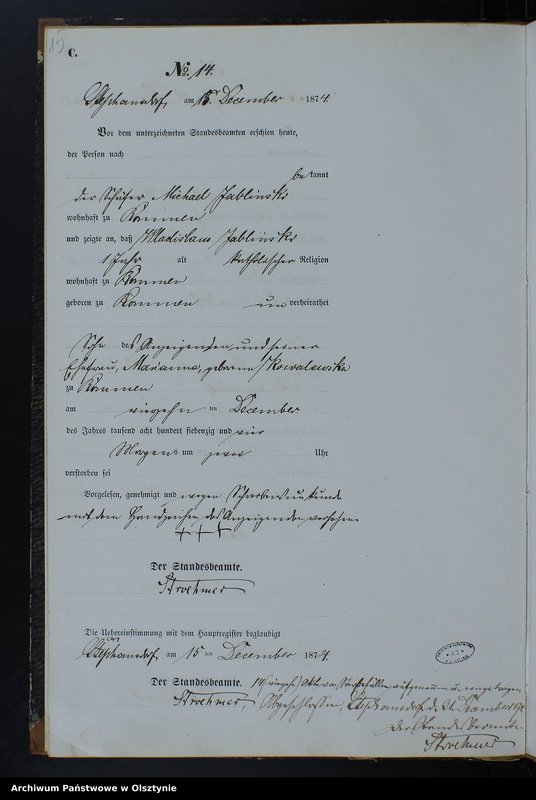 15
C.
No. 14.
Stephansdorf, am 15. December 1874.
Vor dem unterzeichneten Standesbeamten erschien heute,
der Person nach
bekannt
der Schäfer Michael Jablinski
wohnhaft zu
und zeigte an, daß Wladislaus Jablinski
1 Jahr alt katholischer Religion
wohnhaft zu
geboren zu unverheirathet
Sohn des Anzeigenden und seiner
Ehefrau, Marianna, geborene Kowalewska
zu
am vierzehn ten December
des Jahres tausend acht hundert siebenzig und vier
Morgens um zwei Uhr
verstorben sei
Vorgelesen, genehmigt und wegen Schreibensunkunde
mit dem Handzeichen des Anzeigenden versehen
+++
Der Standesbeamte.
Stroehmer
Die Uebereinstimmung mit dem Hauptregister beglaubigt
Stephansdorf am 15 ten December 1874.
Der Standesbeamte.
Stroehmer
14 aufgenommen u. eingetragen
Abgeschlossen, Stephansdorf, d. December
Der Standesbeamte
Stroehmer
Archiwum Państwowe w Olsztynie